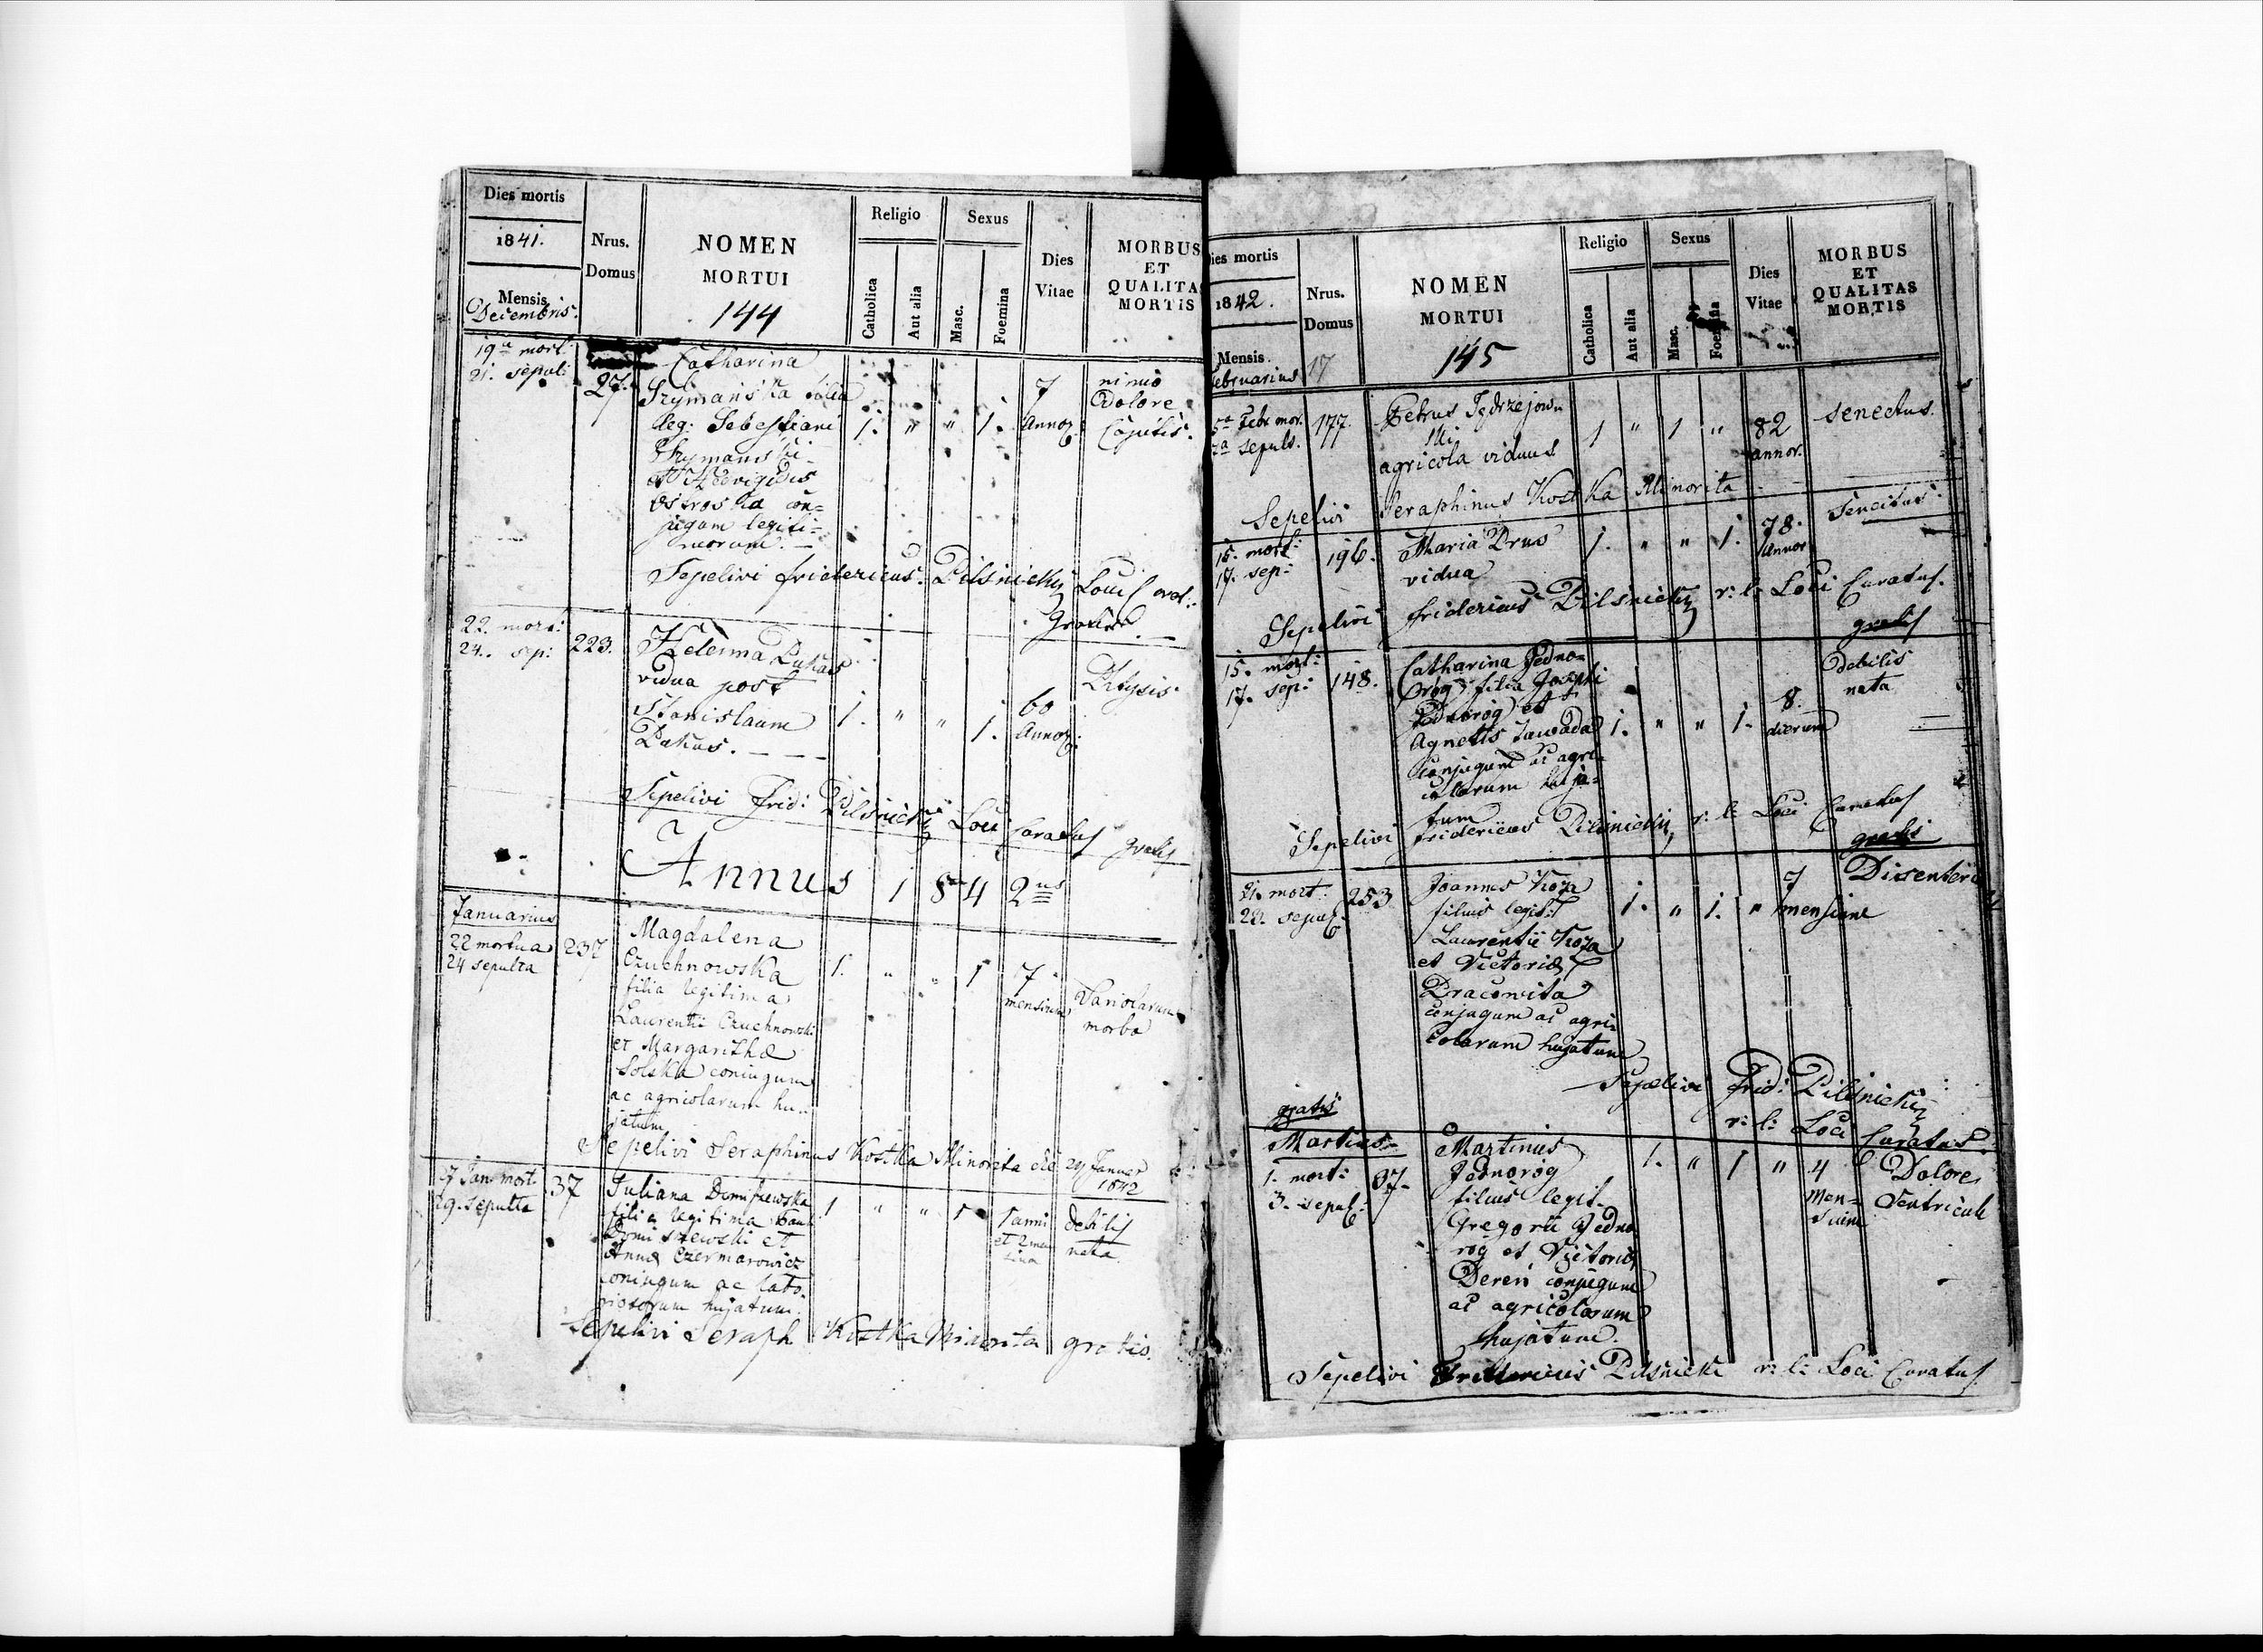 Dies mortis
1841.
Mensis
Decembris.
Nrus.
Domus
NOMEN
MORTUI
144
Religio
Catholica
Aut alia
Sexus
Masc.
Foemina
Dies
Vitae
MORBUS
ET
QUALITA
MORTIS
19a mort:
21. sepul:
27.
Catharina
Szymańska filia
leg: Sebestiani
Szymański
et Hedvigidis
Ostroska con=
jugum legiti=
morum. —
1. " " 1.
7
Annor.
nimio
dolore
Capitis.
Sepelivi fridericus Pilsnicki Loci
gratis.
22. mort:
24. sep:
223.
vidua post
Stanislaum
Pakus. — — —
1. " " 1.
60
Annor.
Phtysis.
Sepelivi Frid: Pilsnicki Loci Curatus gratis
Annus 1842us
Januarius
22 mortua
24 sepulta
237
Magdalena
Czuchnowska
filia legitima
Laurentii Czuchnowski
et Margarithae
Solska coniugum
ac agricolarum hu-
jatum
1. " " 1
7
mensium
Variolarum
morbo
Sepelivi Seraphinus Kostka Minorita die 29 Januar
1842
27 Jan mort
29. sepulta
37
Juliana
filia legitima
et
Annae Czermarowicz
coniugum ac
hujatum.
1 " " 1
1 anni
et 2 men
sium
debilis
nata
Sepelivi Seraph Kostka Minorita gratis.
ies mortis
1842.
Mensis
Februarius
17
Nrus.
Domus
NOMEN
MORTUI
145
Religio
Catholica
Aut alia
Sexus
Masc.
Foemina
Dies
Vitae
MORBUS
ET
QUALITAS
MORTIS
5a Febr mor.
7a sepult.
177.
Petrus Jędrzejow-
ski
agricola viduus
1 " 1 "
82
annor.
senectus.
Sepelivi Seraphinus Kostka Minorita
15. mort:
17. sep:
196.
Maria Drus
vidua
1. " " 1.
78.
Annor
Senectus.
Sepelivi fridericus Pilsnicki r: l: Loci Curatus.
gratis
15. mort:
17. sep:
148.
Catharina Jedno=
rog filia Josephi
Jednorog et
Agnetis Zawada
conjugum ac agri=
colarum huja=
tum
1. " " 1.
8.
dierum
debilis
nata
Sepelivi fridericus Pilsnicki, r: l: Loci Curatus
gratis
21. mort:
22. sepul.
253
Joannes Koza
filius legit:
Laurentii Koza
et Victoriae
Dracowita
conjugum ac agri=
colarum hujatum
1. " 1. "
7
mensium
Dissenteria
Sepelivi Frid: Pilsnicki
r: l: Loci Curatus.
gratis
Martius.
1. mort:
3. sepul:
37.
Martinus
Jednorog
filius legit.
Gregorii Jedno
rog et Victoriae
Dereń conjugum
ac agricolarum
hujatum.
1. " 1 "
4
Men=
sium
Dolore
Ventriculi
Sepelivi Fridericus Pilsnicki r: l: Loci Curatus.